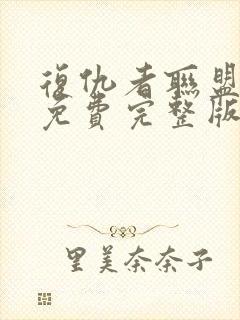 復仇者聯盟
免費完整版
里美奈奈子